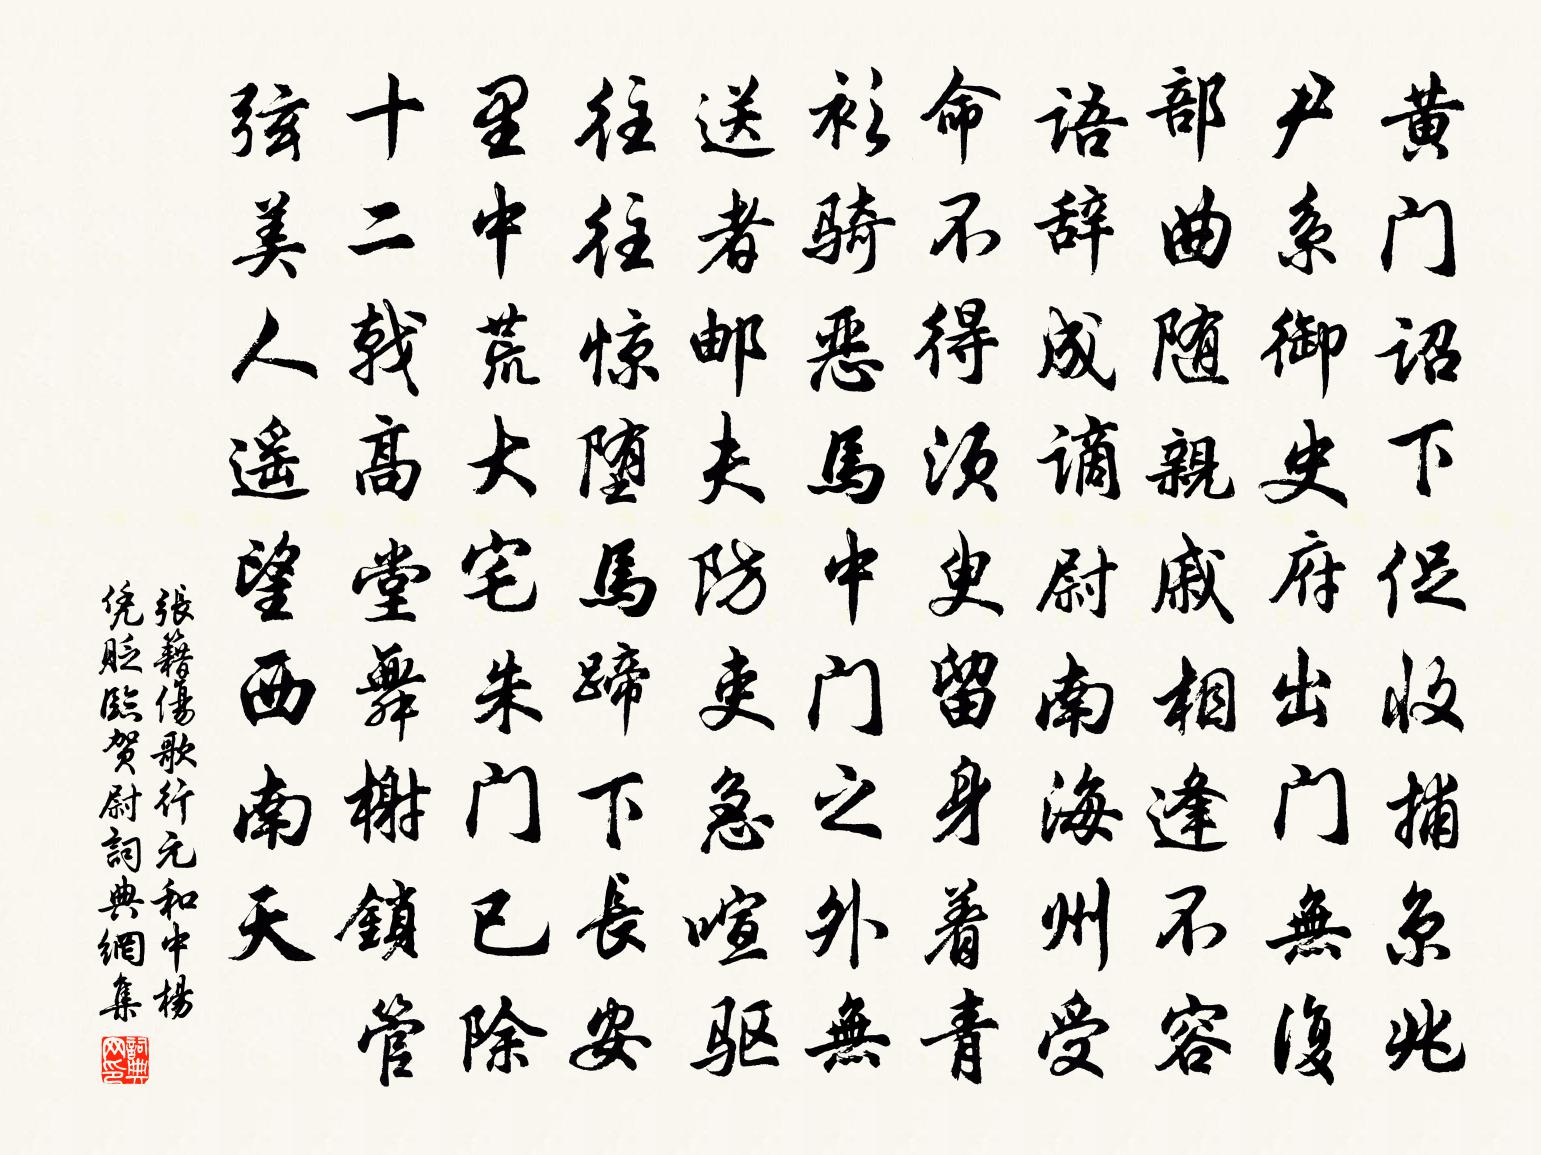 黄门诏下促收捕京兆
尹系御史府出门無復
部曲随親戚相逢不容
語辞成謫尉南海州受
命不得须臾留身着青
衫骑恶馬中门之外無
送者邮夫防吏急喧驱
往往惊堕馬蹄下長安
里中荒大宅朱门已除
十二戟高堂舞榭鎖管
弦美人遥望西南天
張籍傷歌行元和中楊
凭貶臨贺尉詞典網集
詞典网印